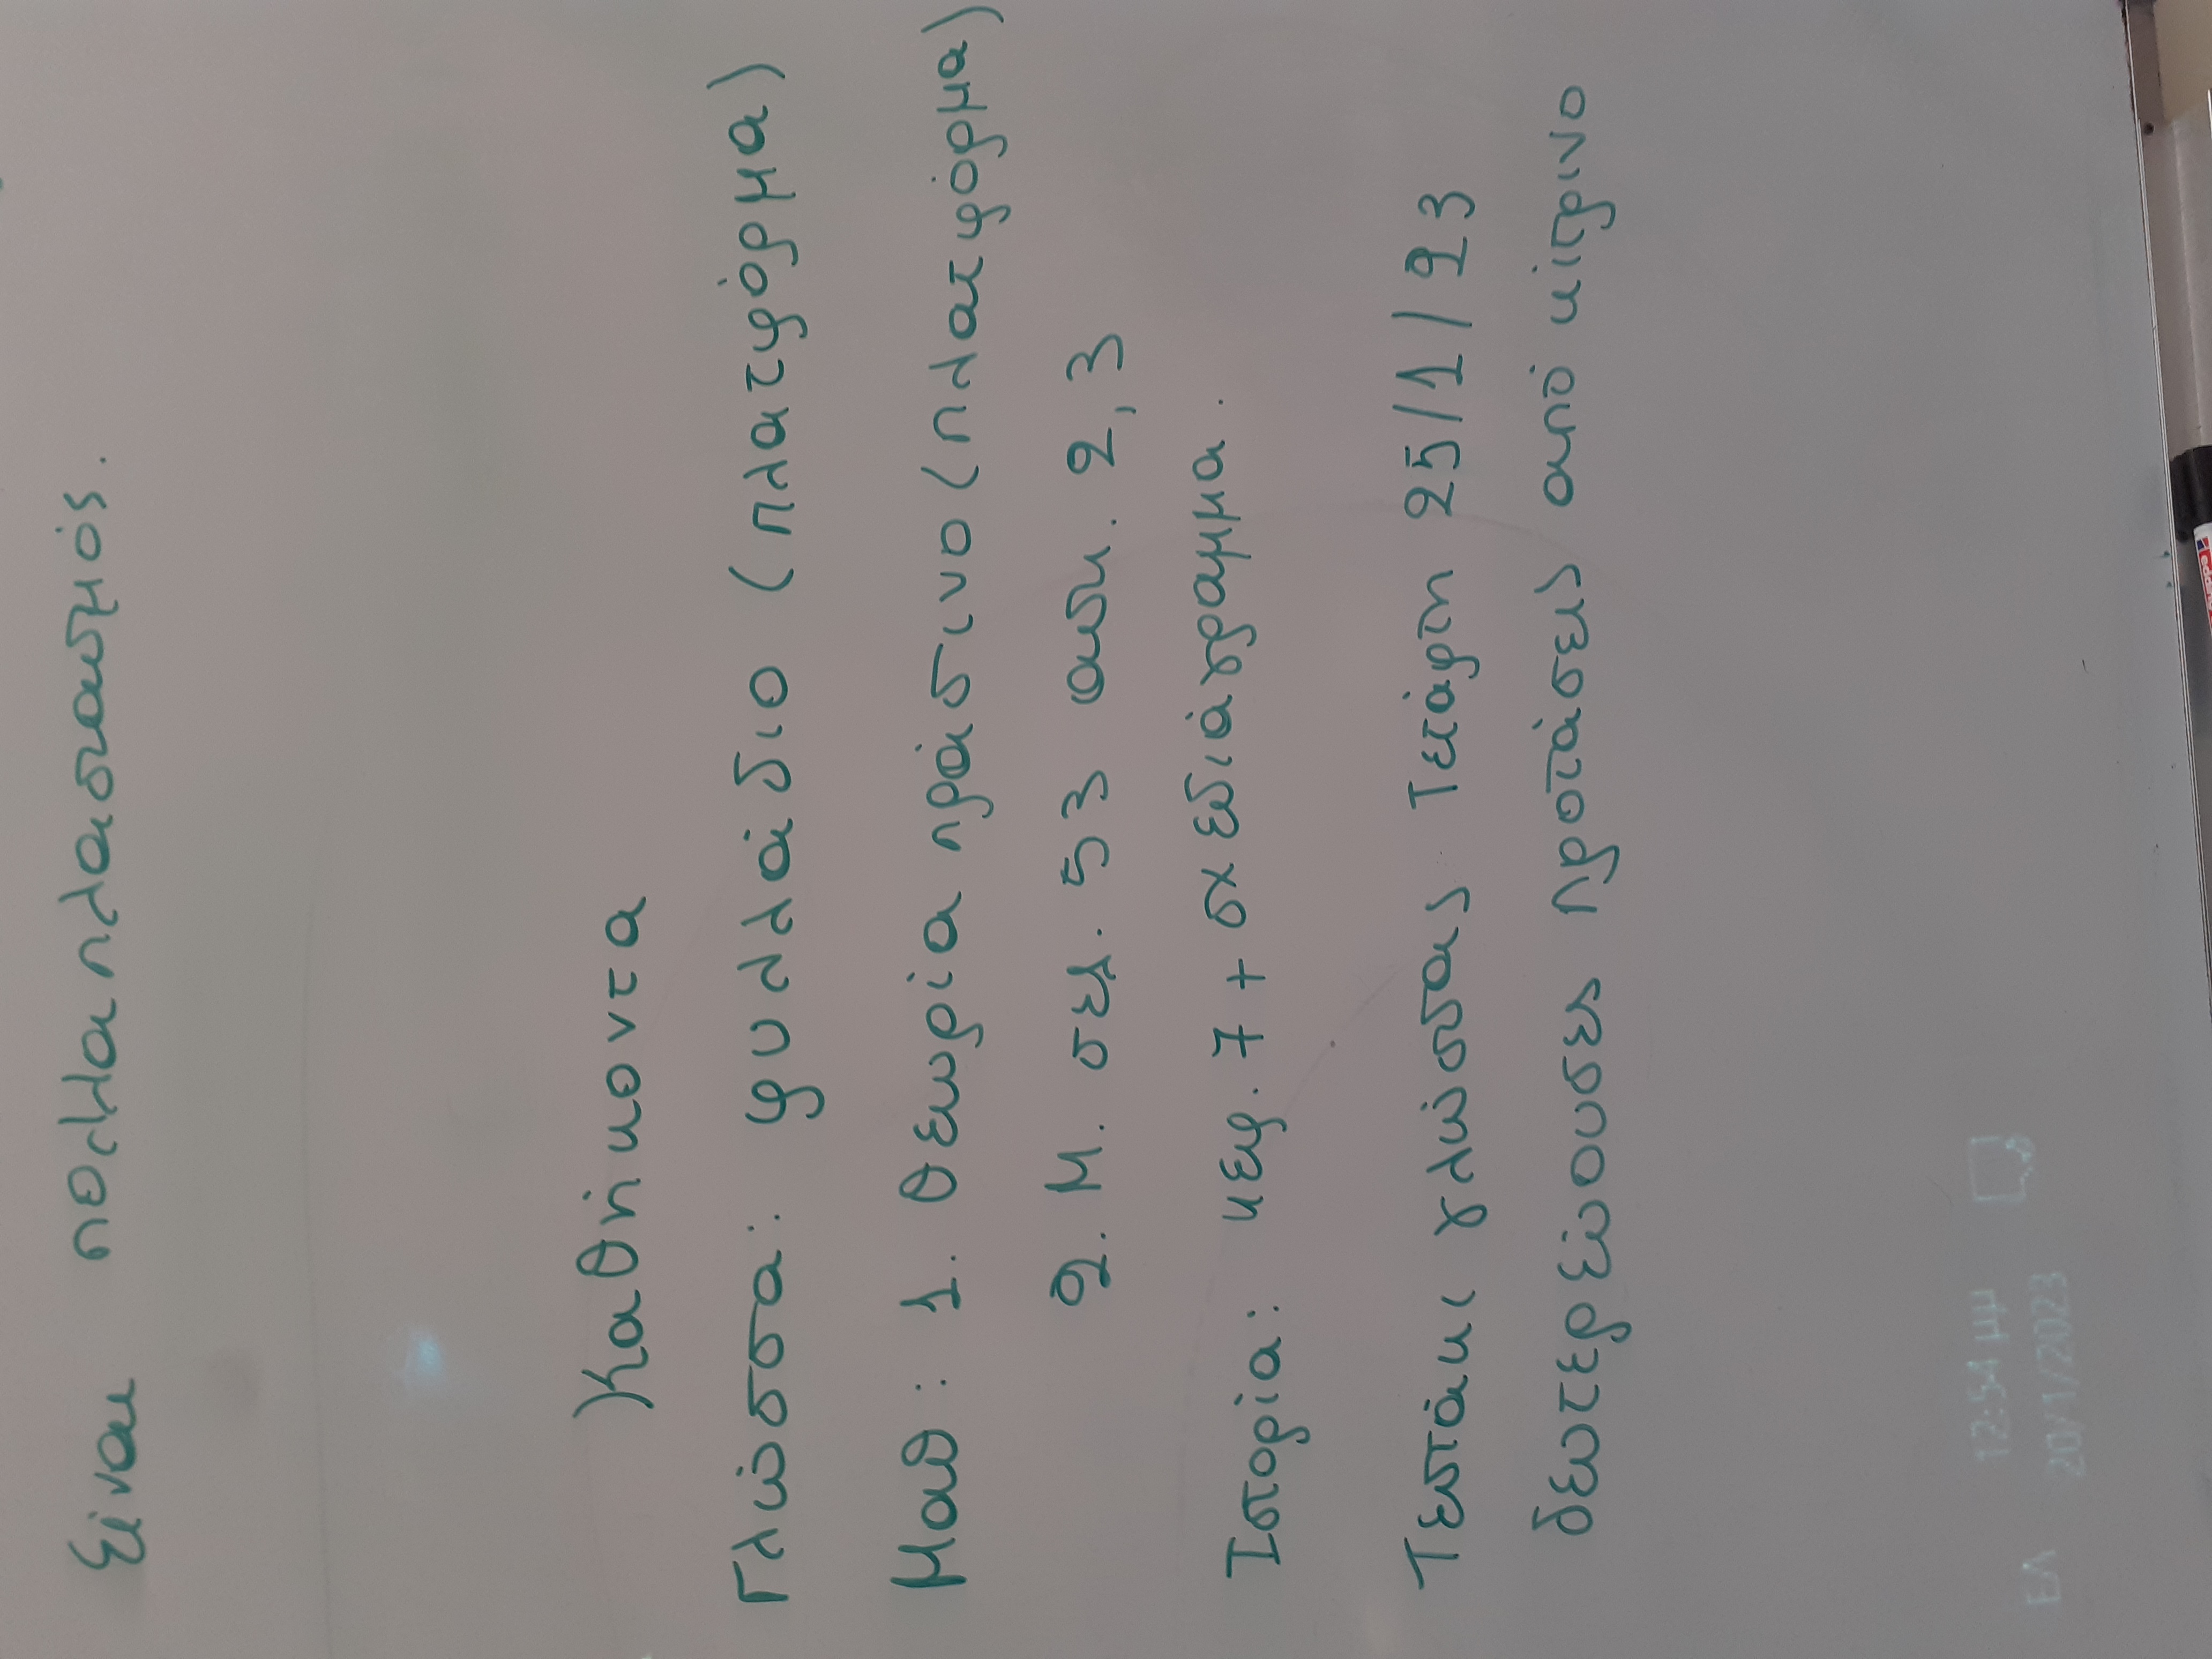 είναι πολλαπλασιασμός.
Καθήκοντα
Γλώσσα: φυλλάδιο (πλατφόρμα)
Μαθ: 1. Θεωρία πράσινο (πλατφόρμα)
2. Μ. σελ. 53 ασκ. 2, 3
Ιστορία: κεφ. 7 + σχεδιάγραμμα.
Τεστάκι γλώσσας Τετάρτη 25/1/23
δευτερεύουσες προτάσεις από κίτρινο
12:54 μμ
ΕΛ 20/1/2023